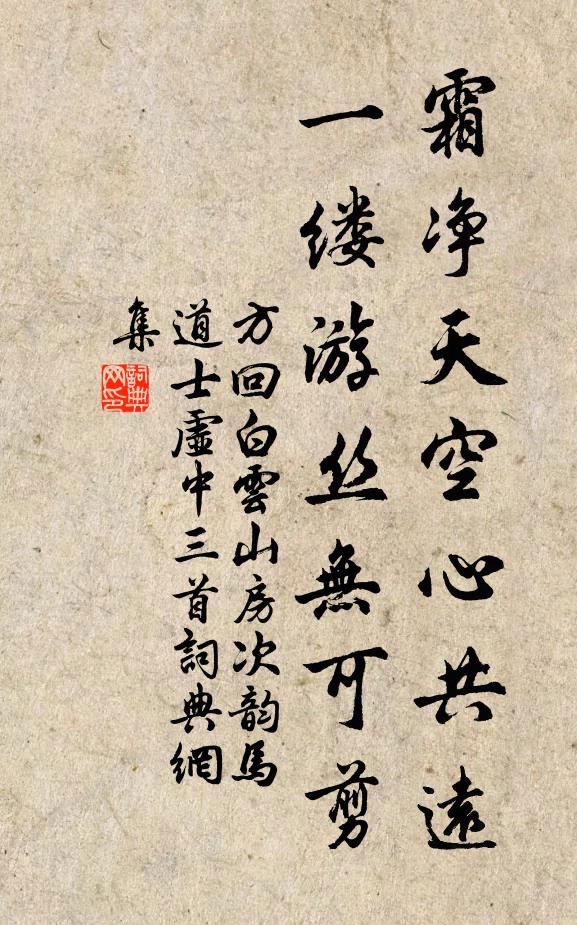 霜净天空心共遠
一缕游丝無可剪
方回白雲山房次韵馬
道士虚中三首詞典網
集
詞典
网印